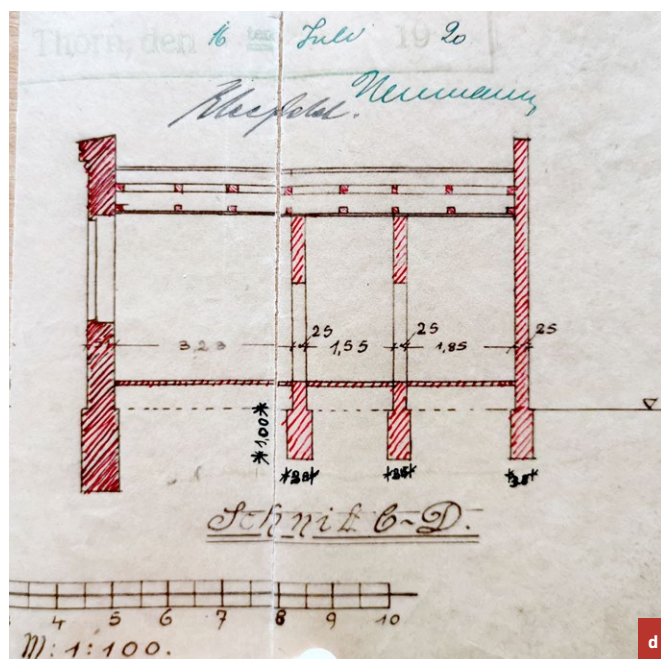 Thorn, den 16 ten Juli 19 20
Neumann
25 25 25
3,23 1,55 1,85
*1,00*
*38* *38* *38*
Schnitt C-D.
4 5 6 7 8 9 10
M: 1:100.
d